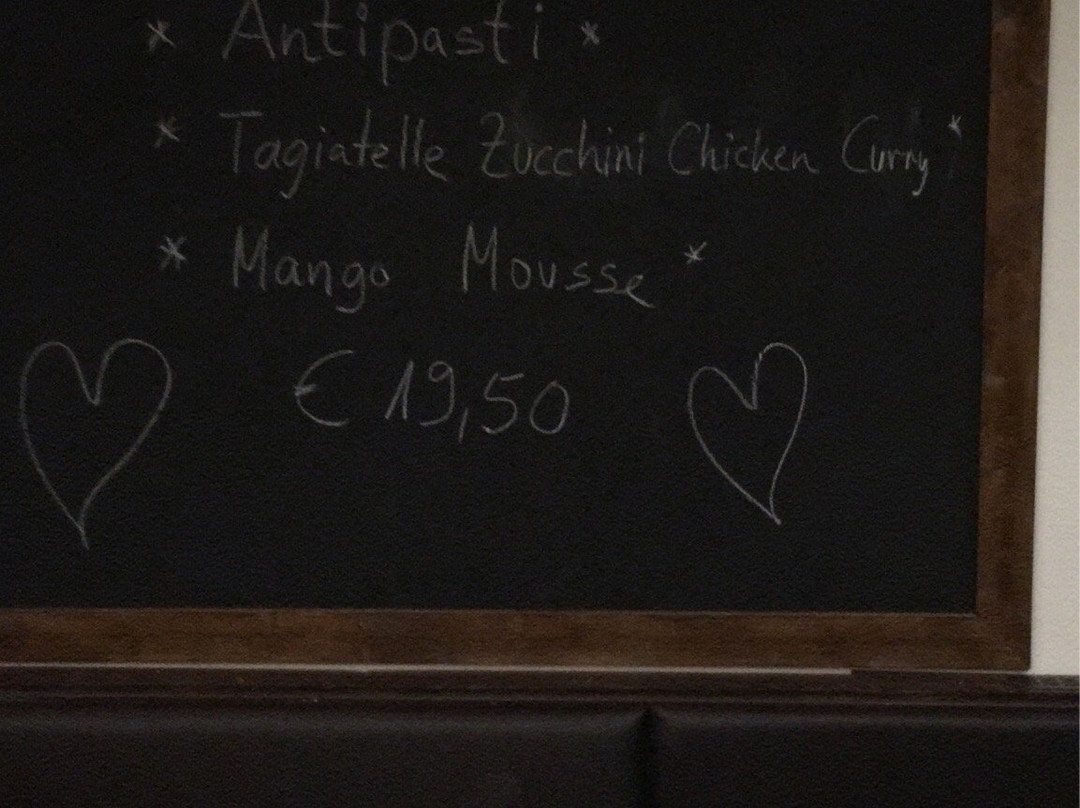 * Antipasti *
* Tagiatelle Zucchini Chicken Curry *
* Mango Mousse *
€ 19,50